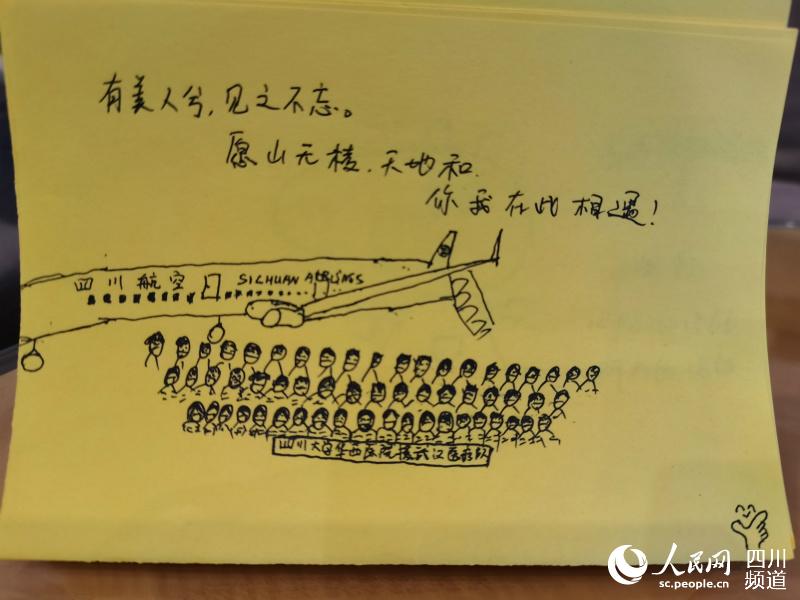 有美人兮，见之不忘。
愿山无棱，天地和
你我在此相遇！
四川航空 SICHUAN AIRLINES
四川大学华西医院援武汉医疗队
人民网 四川频道
sc.people.cn